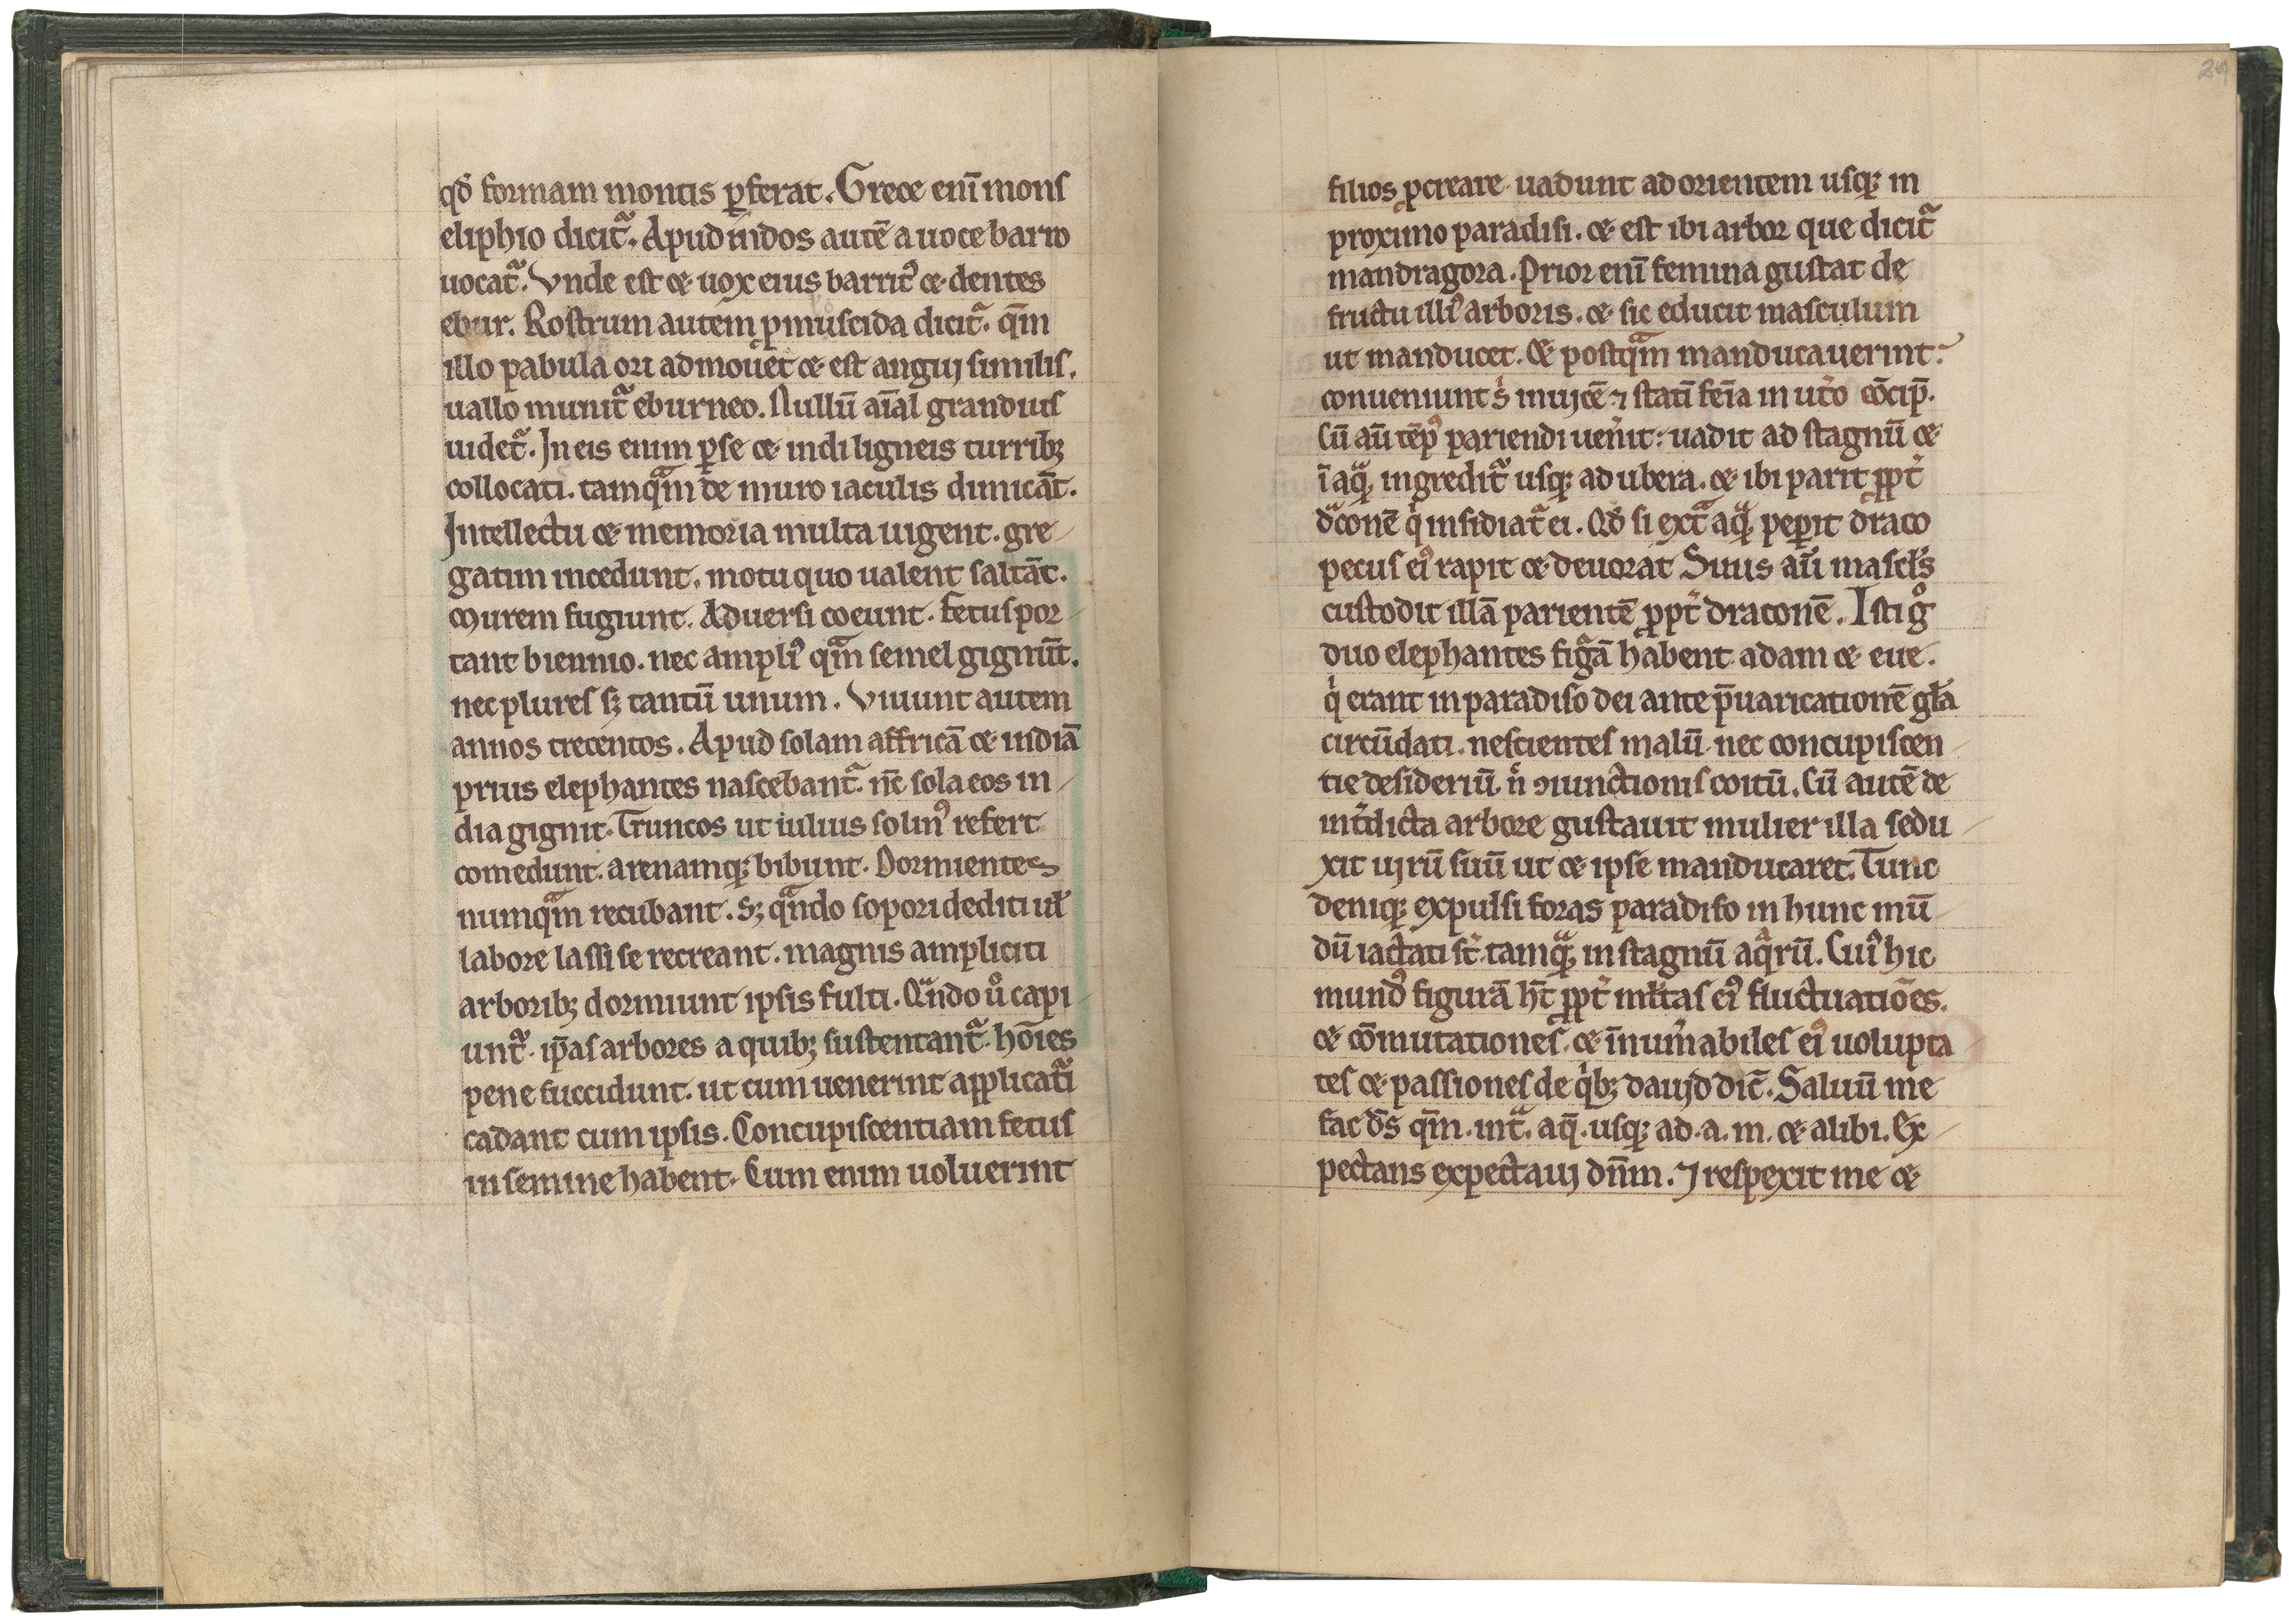 qđ formam montis ꝑferat. Grece enī mons
eliphio dicit᷑. Apud indos autē a uoce barro
uocat᷑. Vnde est ⁊ uox eius barrit᷒ ⁊ dentes
ebur. Rostrum autem ꝓmuscida dicit᷑. qm̄
illo pabula ori admouet ⁊ est angui similis.
uallo munit᷑ eburneo. Nullū aīal grandius
uidet᷑. In eis enim ꝑse ⁊ indi ligneis turribꝫ
collocati. tamqᵃm de muro iaculis dimicāt.
Intellectu ⁊ memoria multa uigent. gre
gatim incedunt. motu quo ualent saltāt.
Murem fugiunt. Aduersi coeunt. fetus por
tant biennio. nec ampli᷒ qᵃm semel gignūt.
nec plures sꝫ tantū unum. Viuunt autem
annos trecentos. Apud solam affricā ⁊ indiā
prius elephantes nascebant᷑. nc̄ sola eos in
dia gignit. Truncos ut iulius solin᷒ refert
comedunt. arenamqꝫ bibunt. Dormientes
numqᵃm recubant. sꝫ qᵃndo sopori dediti uł
labore lassi se recreant. magnis ampliciti
arboribꝫ dormiunt ipsis fulti. Qᵃndo uͦ capi
unt᷑. ip̄as arbores a quibꝫ sustentant᷑. hōies
pene succidunt. ut cum uenerint applicati
cadant cum ipsis. Concupiscentiam fetus
in semine habent. Cum enim uoluerint
24
filios ꝓcreare uadunt ad orientem usqꝫ in
proximo paradisi. ⁊ est ibi arbor que dicit᷑
mandragora. Prior enī femina gustat de
fructu illi᷒ arboris. ⁊ sic educit masculum
ut manducet. Et postqᵃm manducauerint
conueniunt sⁱ inuicē ⁊ statī feīa in utͦo cōcip̄.
Cū aū tēp᷒ pariendi uen̓it. uadit ad stagnū ⁊
ī aqᵃ ingredit᷑ usqꝫ ad ubera. ⁊ ibi parit ꝓpt̓
dᵃconē qⁱ insidiat᷑ ei. Qđ si extᵃ aqᵃ peꝑit draco
pecus ei᷒ rapit ⁊ deuorat Suus aū mascłs
custodit illā parientē ꝓpt̓ draconē. Isti gͦ
duo elephantes figᵃā habent adam ⁊ eue.
qⁱ erant in paradiso dei ante p̄uaricationē gła
circūdati. nescientes malū nec concupiscen
tie desideriū. n̄ ꝯiunctionis coitū. Cū autē de
int̓dicta arbore gustauit mulier illa sedu
xit uirū suū ut ⁊ ipse manducaret. Tunc
deniqꝫ expulsi foras paradiso in hunc mū
dū iactati st̄ tamqᵃ in stagnū aqᵃrū. Cui᷒ hic
mund᷒ figurā hт̄ ꝓpt̓ młtas ei᷒ fluctuatiōes.
⁊ cōmutationes. ⁊ īnum̓abiles ei᷒ uolupta
tes ⁊ passiones de qⁱbꝫ dauid dic̄. Saluū me
fac d̄s qm̄. intᵃ. aq̄. usqꝫ ad. a. m. ⁊ alibi. Ex
pectans expectaui dn̄m. ⁊ respexit me ⁊